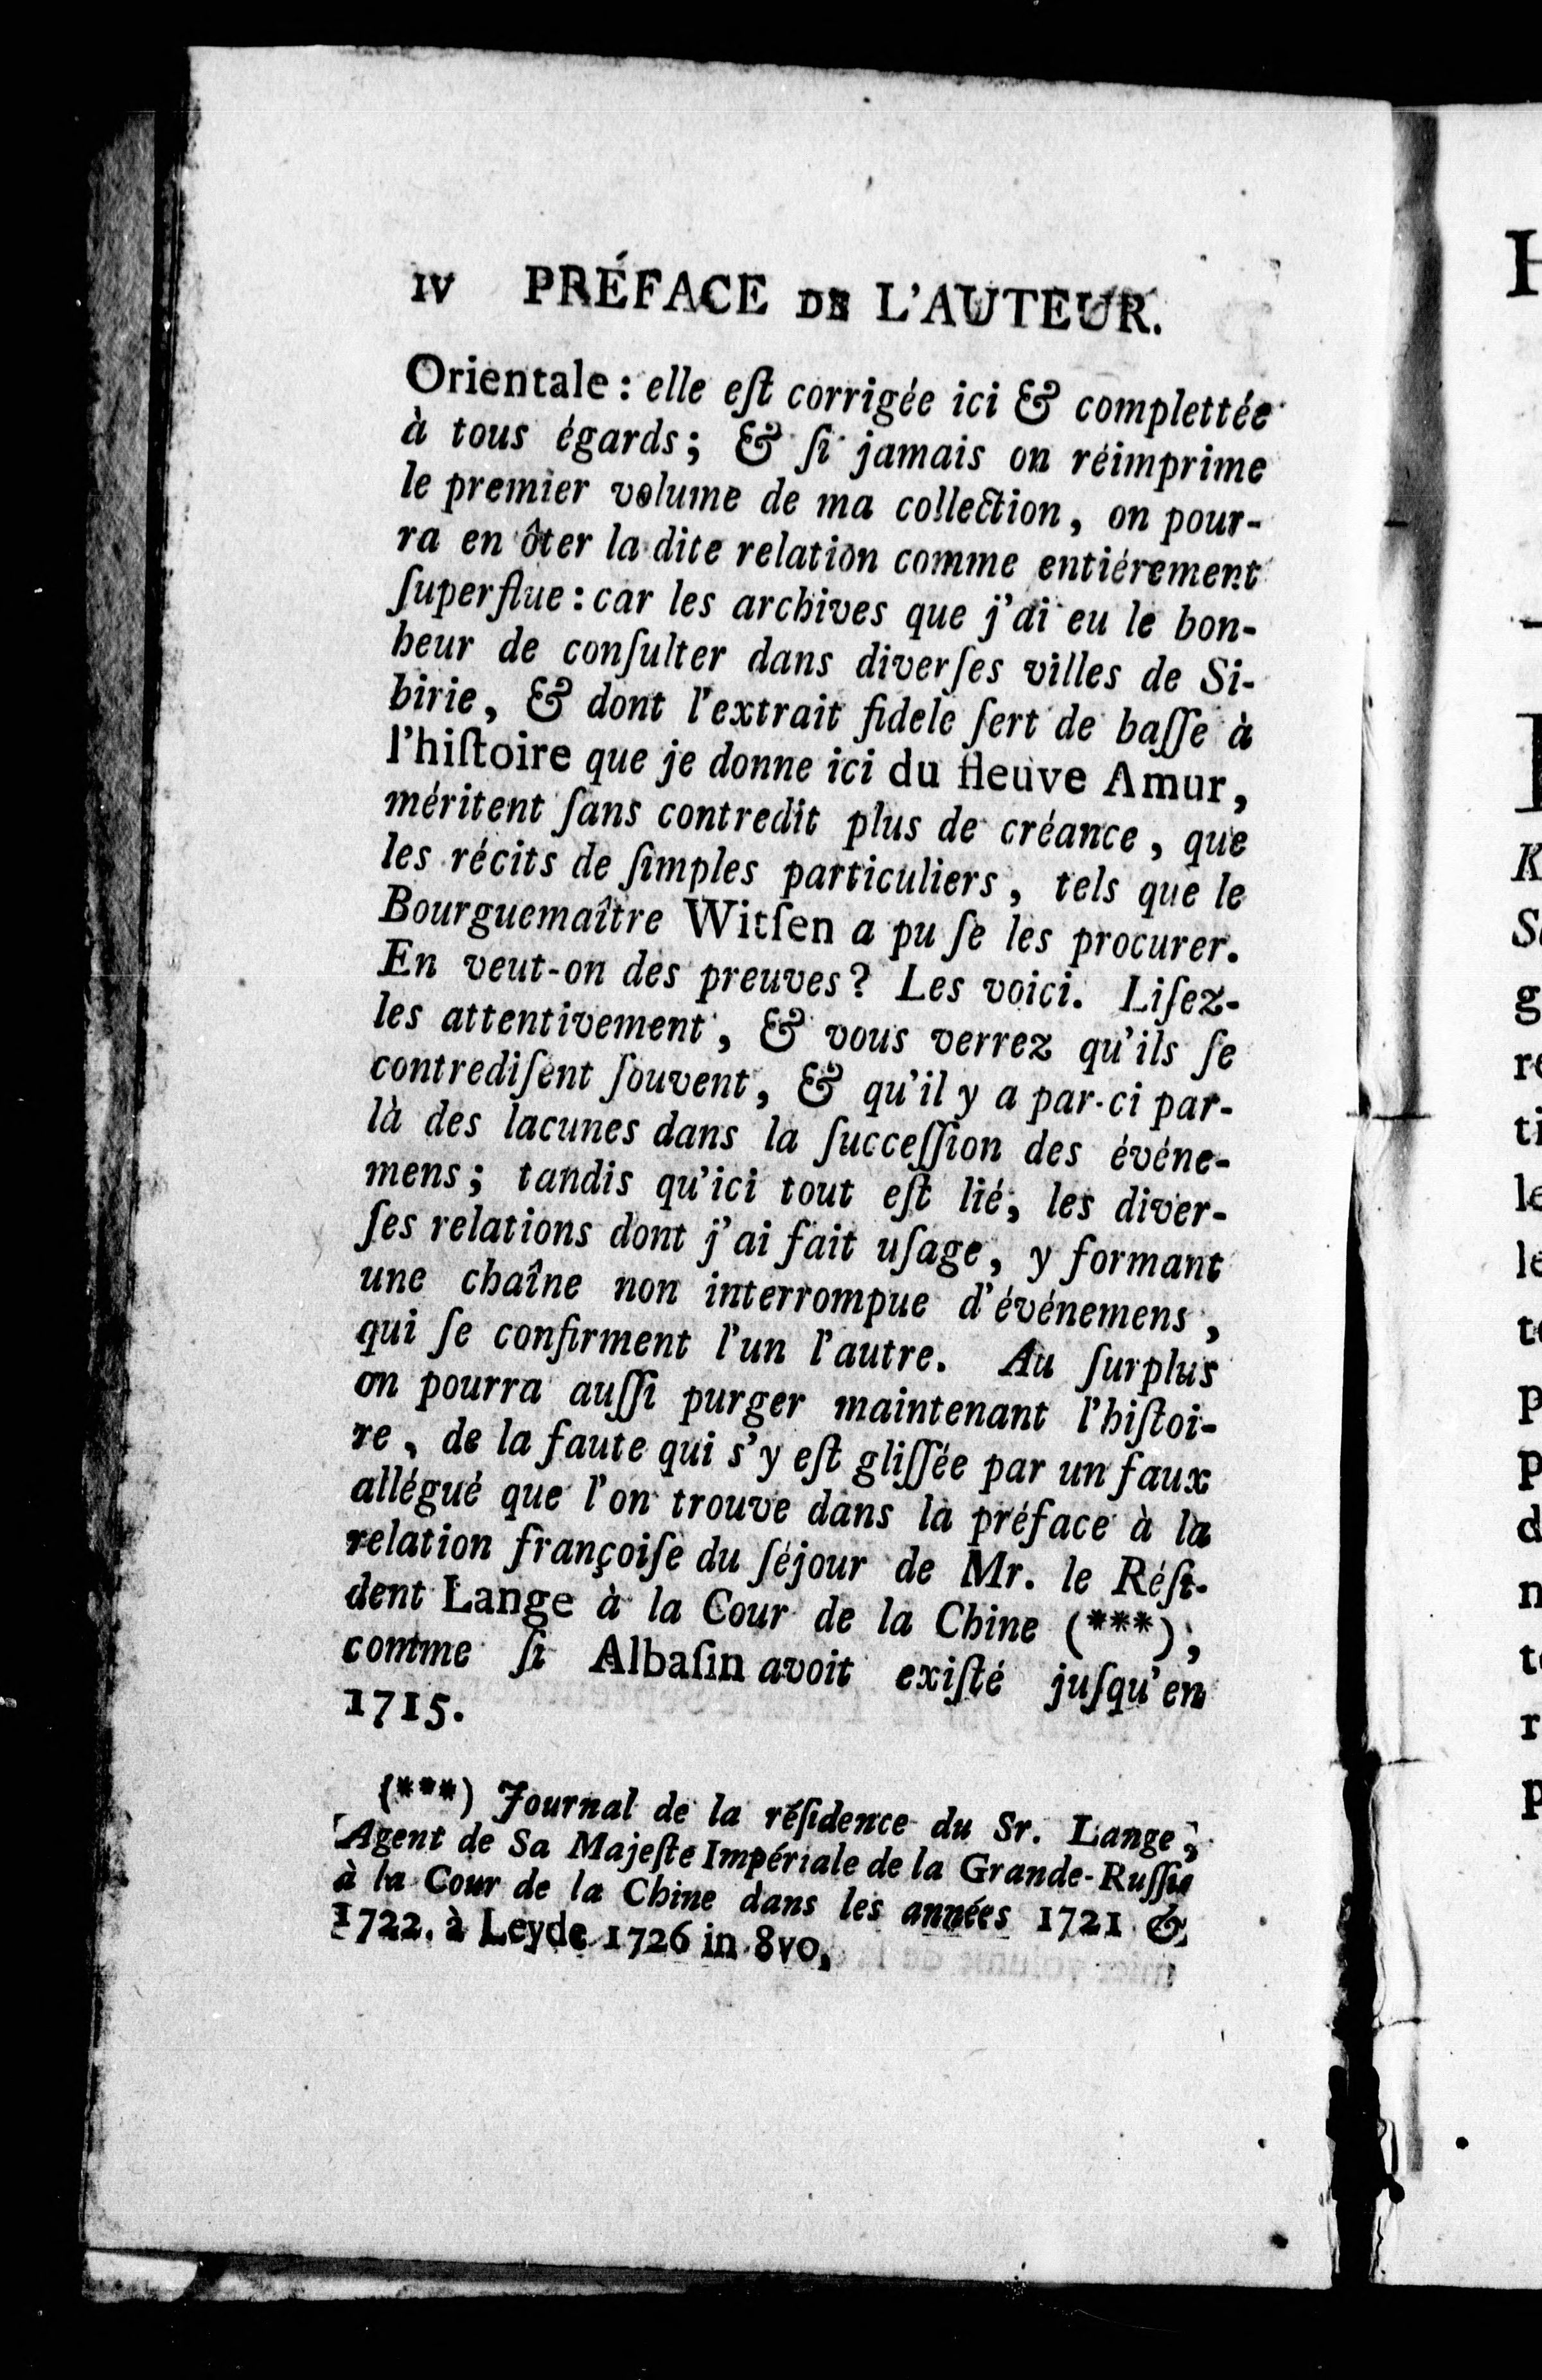 IV PRÉFACE DE L'AUTEUR.
Orientale: elle eſt corrigée ici & complettée
à tous égards; & ſi jamais on réimprime
le premier volume de ma collection, on pour-
ra en ôter la dite relation comme entiérement
ſuperflue: car les archives que j'ai eu le bon-
heur de conſulter dans diverſes villes de Si-
birie, & dont l'extrait fidele ſert de baſſe à
l'hiſtoire que je donne ici du fleuve Amur,
méritent ſans contredit plus de créance, que
les récits de ſimples particuliers, tels que le
Bourguemaître Witſen a pu ſe les procurer.
En veut-on des preuves? Les voici. Liſez-
les attentivement, & vous verrez qu'ils ſe
contrediſent ſouvent, & qu'il y a par-ci par-
là des lacunes dans la ſucceſſion des événe-
mens; tandis qu'ici tout eſt lié, les diver-
ſes relations dont j'ai fait uſage, y formant
une chaîne non interrompue d'événemens,
qui ſe confirment l'un l'autre. Au ſurplus
on pourra auſſi purger maintenant l'hiſtoi-
re, de la faute qui s'y eſt gliſſée par un faux
allégué que l'on trouve dans la préface à la
relation françoiſe du ſéjour de Mr. le Réſi-
dent Lange à la Cour de la Chine (***),
comme ſi Albaſin avoit exiſté juſqu'en
1715.
(***) Journal de la réſidence du Sr. Lange,
Agent de Sa Majeſte Impériale de la Grande-Ruſſie
à la Cour de la Chine dans les années 1721 &
1722. à Leyde 1726 in 8vo.